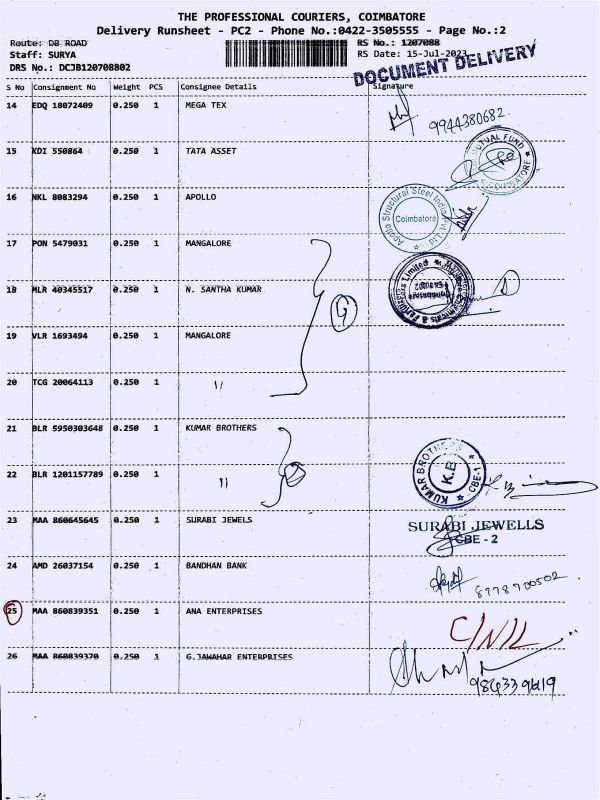 THE PROFESSIONAL COURIERS, COIMBATORE
Delivery Runsheet - PC2 - Phone No.:0422-3505555 - Page No.:2
Route: DB ROAD
RS No.: 1207088
Staff: SURYA
RS Date: 15-Jul-2023
DRS No.: DCJB120708802
DOCUMENT DELIVERY
S No Consignment No Weight PCS Consignee Details Signature
14 EDQ 18072409 0.250 1 MEGA TEX
9944380682
15 KDI 550864 0.250 1 TATA ASSET
MUTUAL FUND COIMBATORE
16 NKL 8083294 0.250 1 APOLLO
Apollo Structural Steel India Pvt Ltd Coimbatore
17 PON 5479031 0.250 1 MANGALORE
18 MLR 40345517 0.250 1 N. SANTHA KUMAR
Mangalore Chemicals & Fertilizers Limited
19 VLR 1693494 0.250 1 MANGALORE
20 TCG 20064113 0.250 1 "
21 BLR 5950303648 0.250 1 KUMAR BROTHERS
KUMAR BROTHERS K.B CBE-1
22 BLR 1201157789 0.250 1 "
23 MAA 860645645 0.250 1 SURABI JEWELS
SURABI JEWELLS
CBE - 2
24 AMD 26037154 0.250 1 BANDHAN BANK
8778700502
25 MAA 860839351 0.250 1 ANA ENTERPRISES
C/N/L
26 MAA 860839370 0.250 1 G.JAWAHAR ENTERPRISES